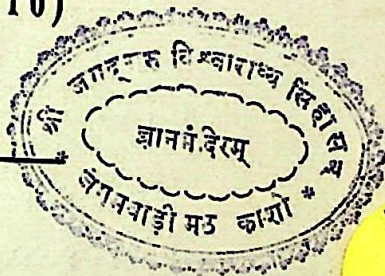 10)
श्री जगद्गुरु विश्वाराध्य सिंहासन
ज्ञानमंदिरम्
* जंगमवाड़ी मठ काशी *